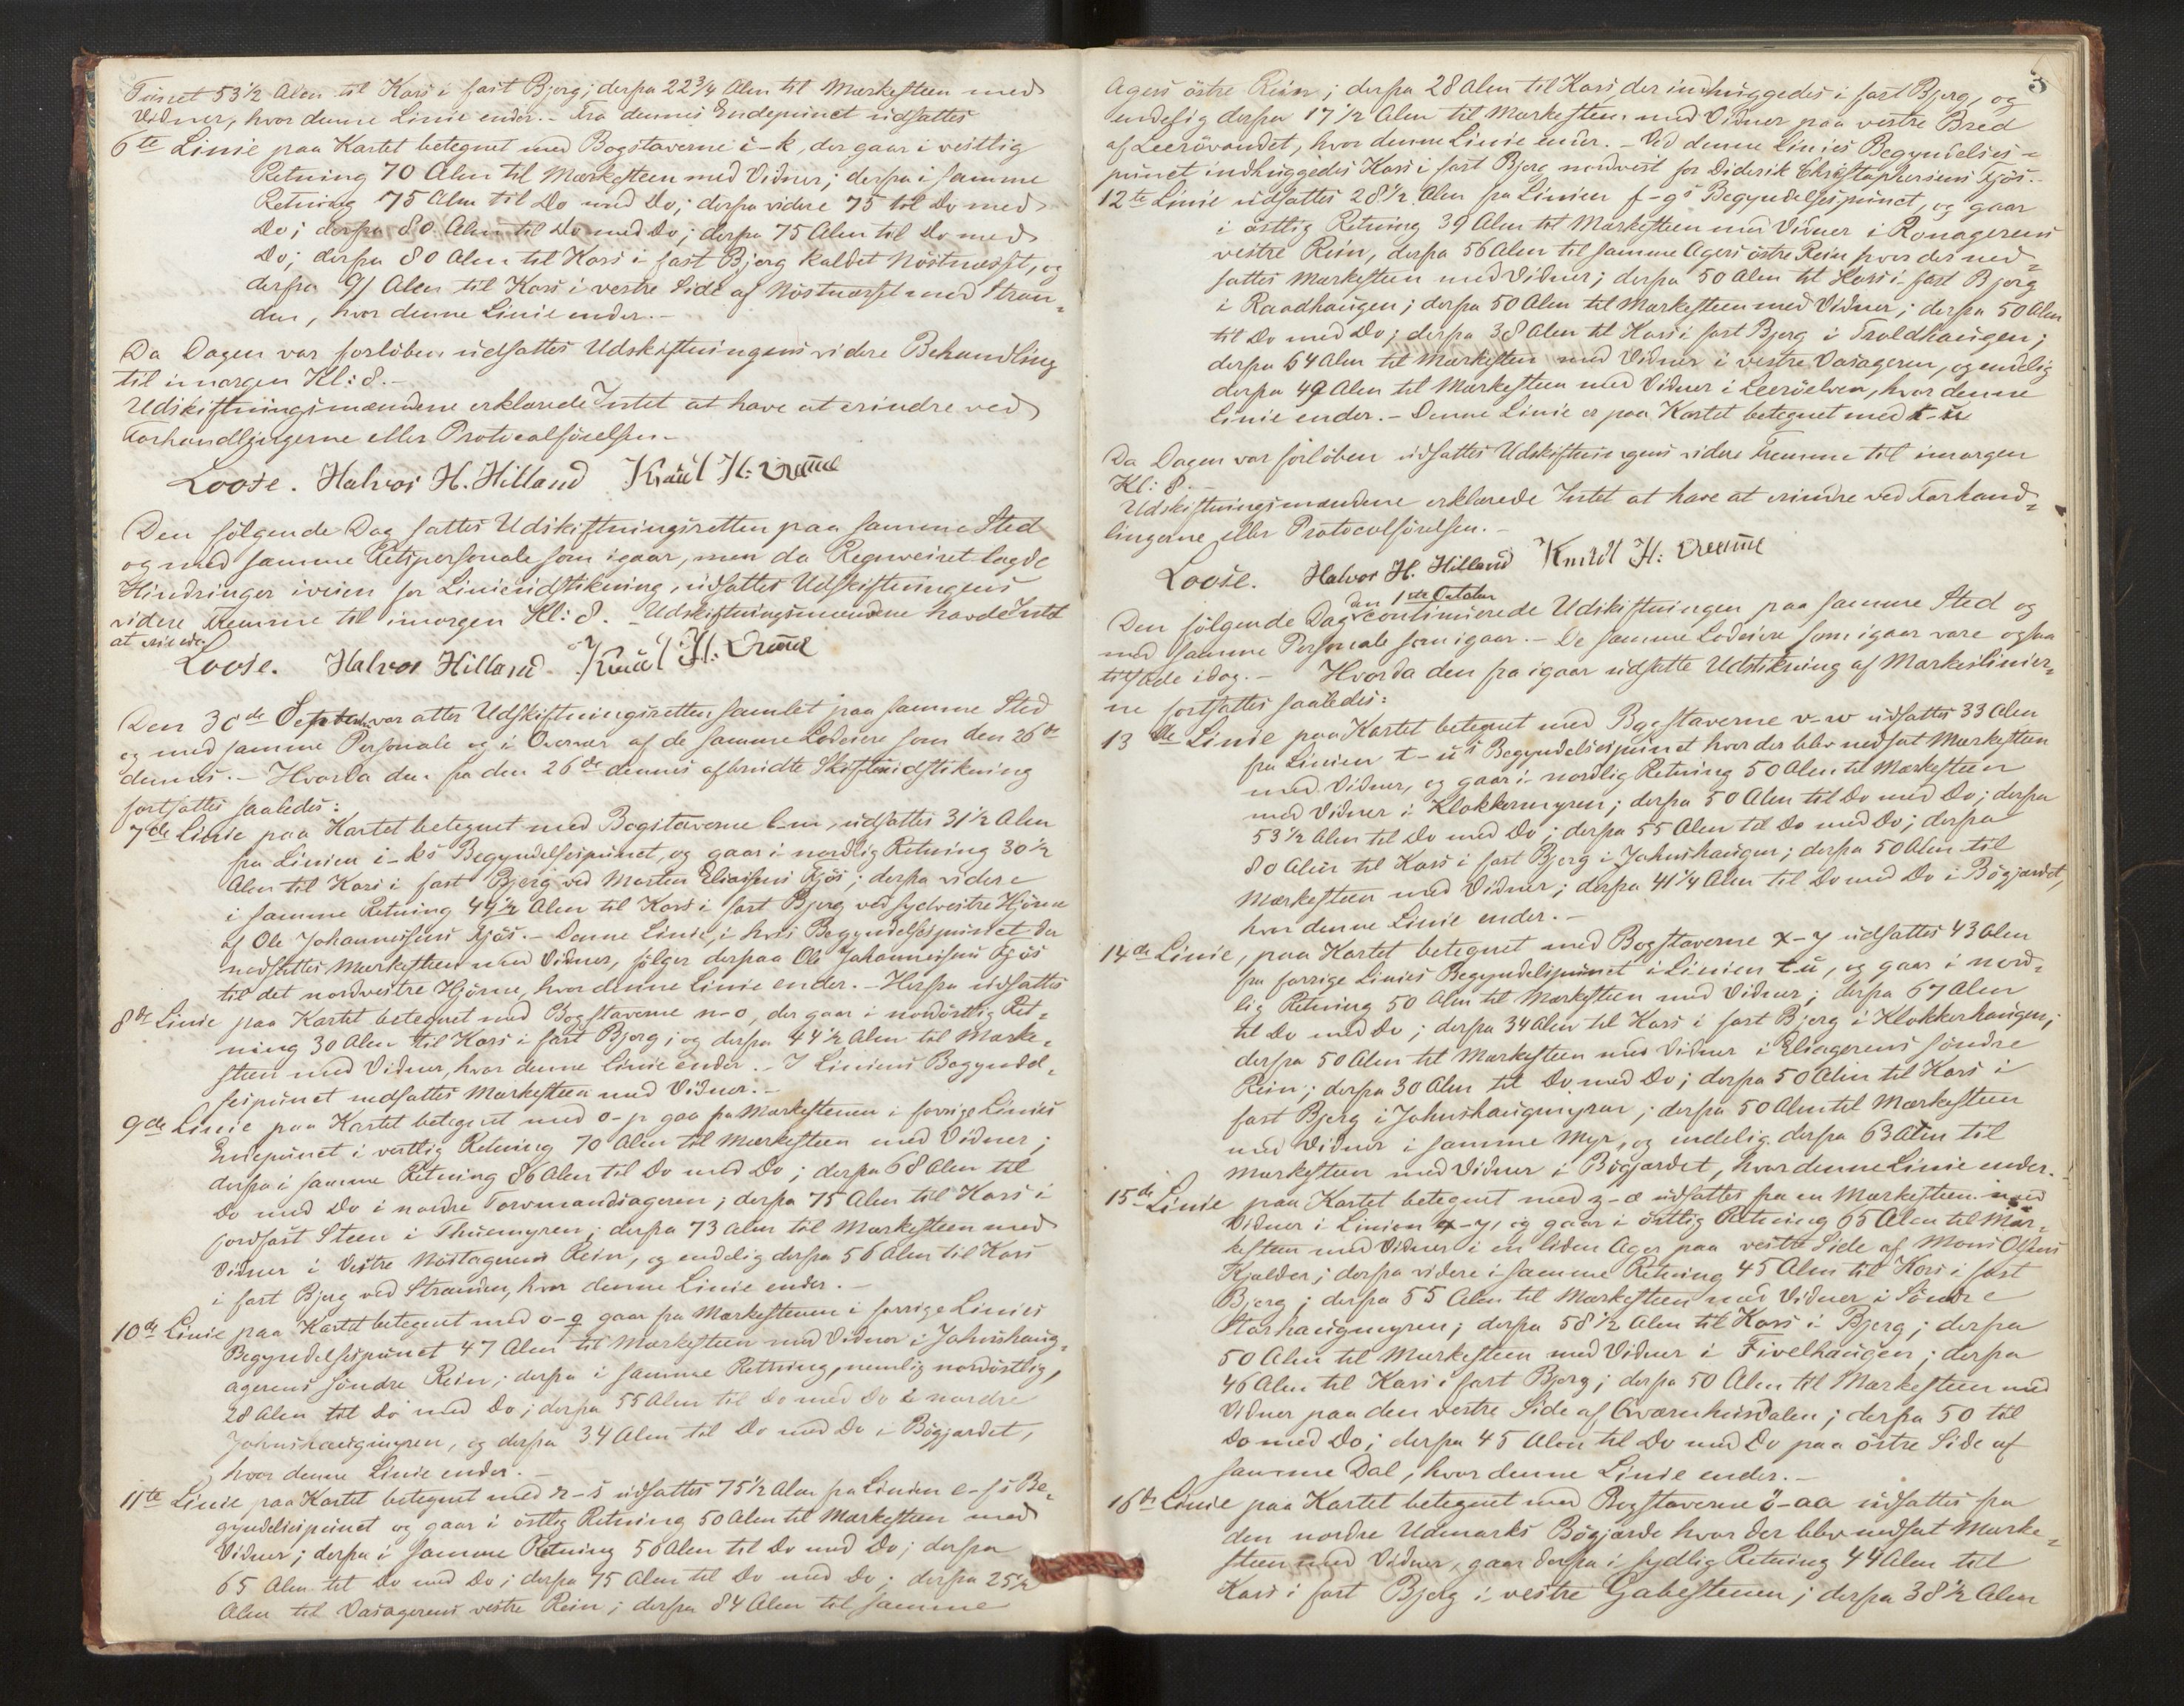 Tunet 53 1/2 Alen til Kors i fast Bjerg; derfra 22 3/4 Alen til Markesteen med
Vidner, hvor denne Linie ender. - Fra dennes Endepunct udsattes
6te Linie paa Kartet betegnet med Bogstaverne i-k, der gaar i vestlig
Retning 70 Alen til Markesteen med Vidner; derfra i samme
Retning 75 Alen til Do med Do; derfra videre 75 til Do med
Do; derfra 80 Alen til Do med Do; derfra 75 Alen til Do med
Do; derfra 80 Alen til Kors i fast Bjerg kaldet Nöstnæsset, og
derfra 91 Alen til Kors i vestre Side af Nöstnæsset med Stran-
den, hvor denne Linie ender. -
Da Dagen var forlöben udsattes Udskiftningens videre Behandling
til imorgen Kl: 8. -
Udskiftningsmændene erklærede Intet at have at erindre ved
Forhandlingerne eller Protocolförelsen. -
Loose. Halvor H. Hilland Knud H:
Den fölgende Dag sattes Udskiftningsretten paa samme Sted
og med samme Retspersonale som igaar, men da Regnveiret lagde
Hindringer iveien for Linieudstikning, udsattes Udskiftningens
videre Fremme til imorgen Kl: 8. - Udskiftningsmændene havde Intet
at erindre.
Loose. Halvor Hilland Knud H:
Den 30de Septbr var atter Udskiftningsretten samlet paa samme Sted
og med samme Personale og i Overvær af de samme Lodeiere som den 26de
dennes. - Hvorda den fra den 26de dennes afbrudte Skifteudstikning
fortsattes saaledes:
7de Linie paa Kartet betegnet med Bogstaverne l-m, udsattes 31 1/2 Alen
fra Linien i-k's Begyndelsespunct, og gaar i nordlig Retning 30 1/2
Alen til Kors i fast Bjerg ved Morten Eliassens Fjös; derfra videre
i samme Retning 44 1/2 Alen til Kors i fast Bjerg ved sydvestre Hjörne
af Ole Johannessens Fjös. - Denne Linie, i hvis Begyndelsespunct der
nedsattes Markesteen med Vidner, fölger derpaa Ole Johannessens Fjös
til det nordvestre Hjörne, hvor denne Linie ender. - Herfra udsattes
8de Linie paa Kartet betegnet med Bogstaverne n-o, der gaar i nordöstlig Ret-
ning 30 Alen til Kors i fast Bjerg; og derfra 44 1/2 Alen til Marke-
steen med Vidner, hvor denne Linie ender. - I Liniens Begyndel-
sespunct nedsattes Markesteen med Vidner. -
9de Linie paa Kartet betegnet med o-p gaa fra Markestenen i forrige Linies
Endepunct i vestlig Retning 70 Alen til Markesteen med Vidner;
derfra i samme Retning 86 Alen til Do med Do; derfra 68 Alen til
Do med Do i nordre Tormandsageren; derfra 75 Alen til Kors i
jordfast Steen i Thuemyren; derfra 73 Alen til Markesteen med
Vidner i Vestre Nöstagerens Rein, og endelig derfra 56 Alen til Kors
i fast Bjerg ved Stranden, hvor denne Linie ender. -
10de Linie paa Kartet betegnet med o-q gaar fra Markestenen i forrige Linies
Begyndelsespunct 47 Alen til Markesteen med Vidner i Johnshaug-
agerens söndre Rein; derfra i samme Retning, nemlig nordöstlig,
28 Alen til Do med Do; derfra 55 Alen til Do med Do i nordre
Johnshaugmyren, og derfra 34 Alen til Do med Do i Bögjærdet,
hvor denne Linie ender. -
11te Linie paa Kartet betegnet med r-s udsattes 75 1/2 Alen fra Linien e-f's Be-
gyndelsespunct og gaar i östlig Retning 50 Alen til Markesteen med
Vidner; derfra i samme Retning 50 Alen til Do med Do; derfra
65 Alen til Do med Do; derfra 75 Alen til Do med Do; derfra 25 1/2
Alen til Vasagerens vestre Rein; derfra 84 Alen til samme
3
Agers östre Rein; derfra 28 Alen til Kors der indhuggedes i fast Bjerg, og
endelig derfra 17 1/2 Alen til Markesteen med Vidner paa vestre Bred
af Leerövandet, hvor denne Linie ender. - Ved denne Linies Begyndelses-
punct indhuggedes Kors i fast Bjerg nordvest for Diderik Christophersens Fjös. -
12te Linie udsattes 28 1/2 Alen fra Linien f-g's Begyndelsespunct, og gaar
i östlig Retning 39 Alen til Markesteen med Vidner i Ronagerens
vestre Rein, derfra 56 Alen til samme Agers östre Rein hvor der ned-
sattes Markesteen med Vidner; derfra 50 Alen til Kors i fast Bjerg
i Raadhaugen; derfra 50 Alen til Markesteen med Vidner; derfra 50 Alen
til Do med Do; derfra 38 Alen til Kors i fast Bjerg i Troldhaugen;
derfra 64 Alen til Markesteen med Vidner i vestre Vasageren, og endelig
derfra 49 Alen til Markesteen med Vidner i Leeröelven, hvor denne
Linie ender. - Denne Linie er paa Kartet betegnet med t-u
Da Dagen var forlöben udsattes Udskiftningens videre Fremme til imorgen
Kl: 8. -
Udskiftningsmændene erklærede Intet at have at erindre ved Forhand-
lingerne eller Protocolförelsen. -
Loose. Halvor H. Hilland Knud H:
den 1ste October
Den fölgende Dag continuerede Udskiftningen paa samme Sted og
med samme Personale som igaar. - De samme Lodeiere som igaar vare ogsaa
tilstede idag. - Hvorda den fra igaar udsatte Udstikning af Markeslinier-
ne fortsattes saaledes:
13de Linie paa Kartet betegnet med Bogstaverne v-w udsattes 33 Alen
fra Linien t-u's Begyndelsespunct hvor der blev nedsat Markesteen
med Vidner, og gaar i nordlig Retning 50 Alen til Markesteen
med Vidner i Klokkermyren; derfra 50 Alen til Do med Do; derfra
53 1/2 Alen til Do med Do; derfra 55 Alen til Do med Do; derfra
80 Alen til Kors i fast Bjerg i Johnshaugen; derfra 50 Alen til
Markesteen med Vidner; derfra 41 1/4 Alen til Do med Do i Bögjærdet,
hvor denne Linie ender. -
14de Linie, paa Kartet betegnet med Bogstaverne x-y udsattes 43 Alen
fra forrige Linies Begyndelsespunct i Linien t-u, og gaar i nord-
lig Retning 50 Alen til Markesteen med Vidner; derfra 67 Alen
til Do med Do; derfra 34 Alen til Kors i fast Bjerg i Klokkerhaugen;
derfra 50 Alen til Markesteen med Vidner i Eliagerens söndre
Rein; derfra 30 Alen til Do med Do; derfra 50 Alen til Kors i
fast Bjerg i Johnshaugmyrar; derfra 50 Alen til Markesteen
med Vidner i samme Myr, og endelig derfra 63 Alen til
Markesteen med Vidner i Bögjærdet, hvor denne Linie ender.
15de Linie paa Kartet betegnet med z-æ udsattes fra en Markesteen med
Vidner i Linien x-y, og gaar i östlig Retning 65 Alen til Mar-
kesteen med Vidner i en liden Ager paa vestre Side af Mons Olsens
Kjelder; derfra videre i samme Retning 45 Alen til Kors i fast
Bjerg; derfra 55 Alen til Markesteen med Vidner i Söndre
Storhaugmyren; derfra 58 1/2 Alen til Kors i Bjerg; derfra
50 Alen til Markesteen med Vidner i Fivelhaugen; derfra
46 Alen til Kors i fast Bjerg; derfra 50 Alen til Markesteen med
Vidner paa den vestre Side af Qværnhusdalen; derfra 50 til
Do med Do; derfra 45 Alen til Do med Do paa östre Side af
samme Dal, hvor denne Linie ender. -
16de Linie paa Kartet betegnet med Bogstaverne ö-aa udsattes fra
den nordre Udmarks Bögjærde hvor der blev nedsat Marke-
steen med Vidner, gaar derfra i sydlig Retning 44 Alen til
Kors i fast Bjerg i vestre Gabestenen; derfra 38 1/2 Alen